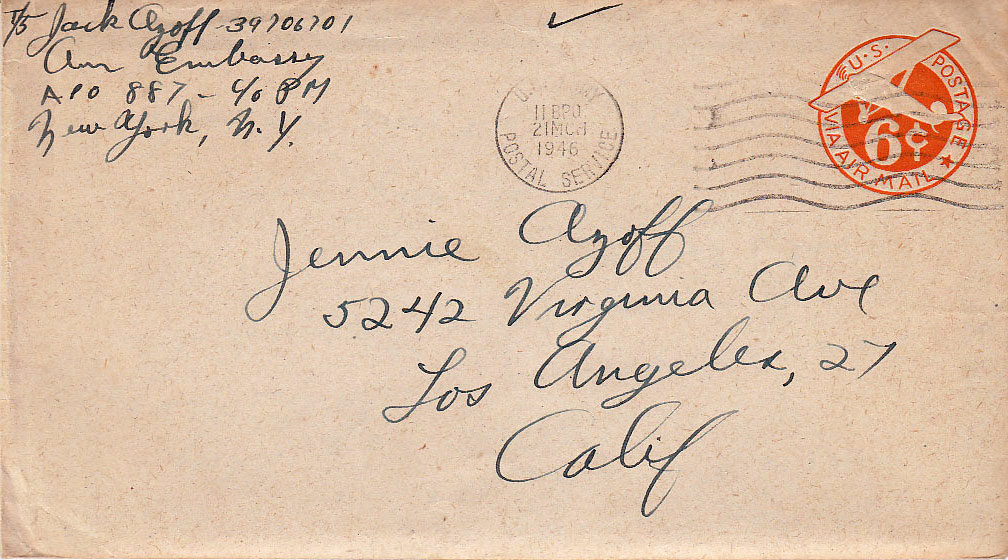 T/5 Jack Azoff - 39706701
Am Embassy
APO 887 - c/o PM
New York, N.Y.
U.S. ARMY
11 BPO
21 MCH
1946
POSTAL SERVICE
U.S. POSTAGE
6¢
VIA AIR MAIL
Jennie Azoff
5242 Virginia Ave
Los Angeles, 27
Calif